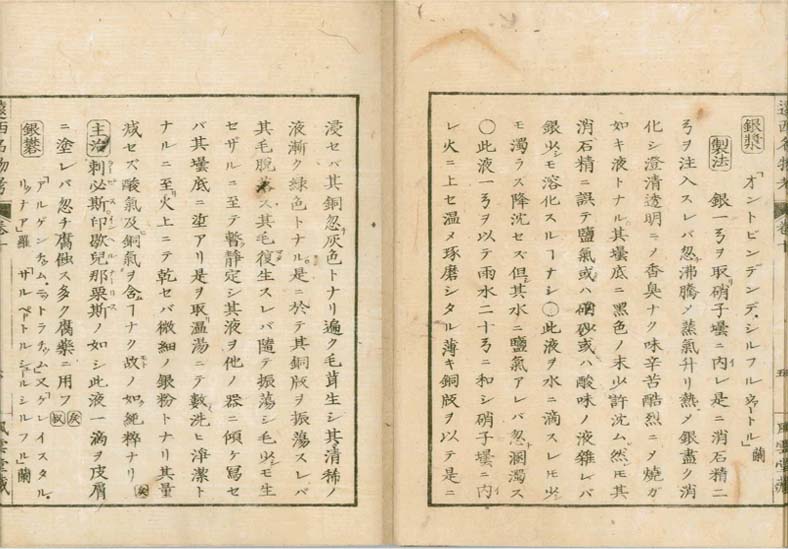 遠西名物考
銀漿
「オントビンデンデ、シルフルウァートル」蘭
製法 銀一弓ヲ取硝子壜ニ内レ是ニ消石精二
弓ヲ注入スレバ忽沸騰〆蒸氣升リ熱〆銀盡ク消
化シ澄清透明ニ〆香臭ナク味辛苦酷烈ニ〆燒ガ
如キ液トナル其壜底ニ黑色ノ末少許沈ム然モ其
消石精ニ誤テ鹽氣或ハ硇砂或ハ酸味ノ液雜レバ
銀少シモ溶化スルヿナシ〇此液ヲ水ニ滴スレモ少
モ濁ラス降沈セズ但其水ニ鹽氣アレバ忽溷濁ス
〇此液一弓ヲ以テ雨水二十弓ニ和シ硝子壜ニ内
レ火ニ上セ温メ琢磨シタル薄キ銅版ヲ以テ是ニ
風雲堂藏
浸セバ其銅忽灰色トナリ遍ク毛茸生シ其清稀ノ
液漸ク綠色トナル是ニ於テ其銅版ヲ振蕩スレバ
其毛脫落ス其毛復生スレバ隨テ振蕩シ毛少シモ生
セザルニ至テ暫静定シ其液ヲ他ノ器ニ傾ケ寫セ
バ其壜底ニ
アリ是ヲ取温湯ニテ數洗ヒ淨潔ト
ナルニ至火上ニテ乾セバ微細ノ銀粉トナリ其量
减セズ酸氣及銅氣ヲ含ムヿナク故ノ如純粹ナリ
主治 刺必斯印歇兒那栗斯ノ如シ此液一滴ヲ皮膚
ニ塗レバ忽チ腐蝕ス多ク腐藥ニ用フ
銀礬
「アルゲンチュム、ニットラチュム」又「ゲレイスタル、
リッナア」羅「サルペートルシュールシルフル」蘭
遠西名物考 卷十
風雲堂藏